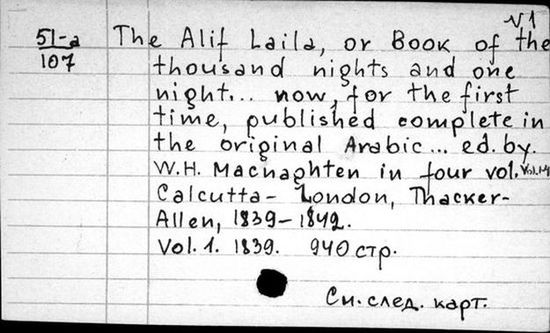 N1
51-a The Alif Laila, or Book of the
107 thousand nights and one
night... now, for the first
time, published complete in
the original Arabic... ed. by.
W.H. Macnaghten in four vol.
Calcutta - London, Thacker-
Allen, 1839-1842.
Vol. 1. 1839. 940 стр.
См. след. карт.